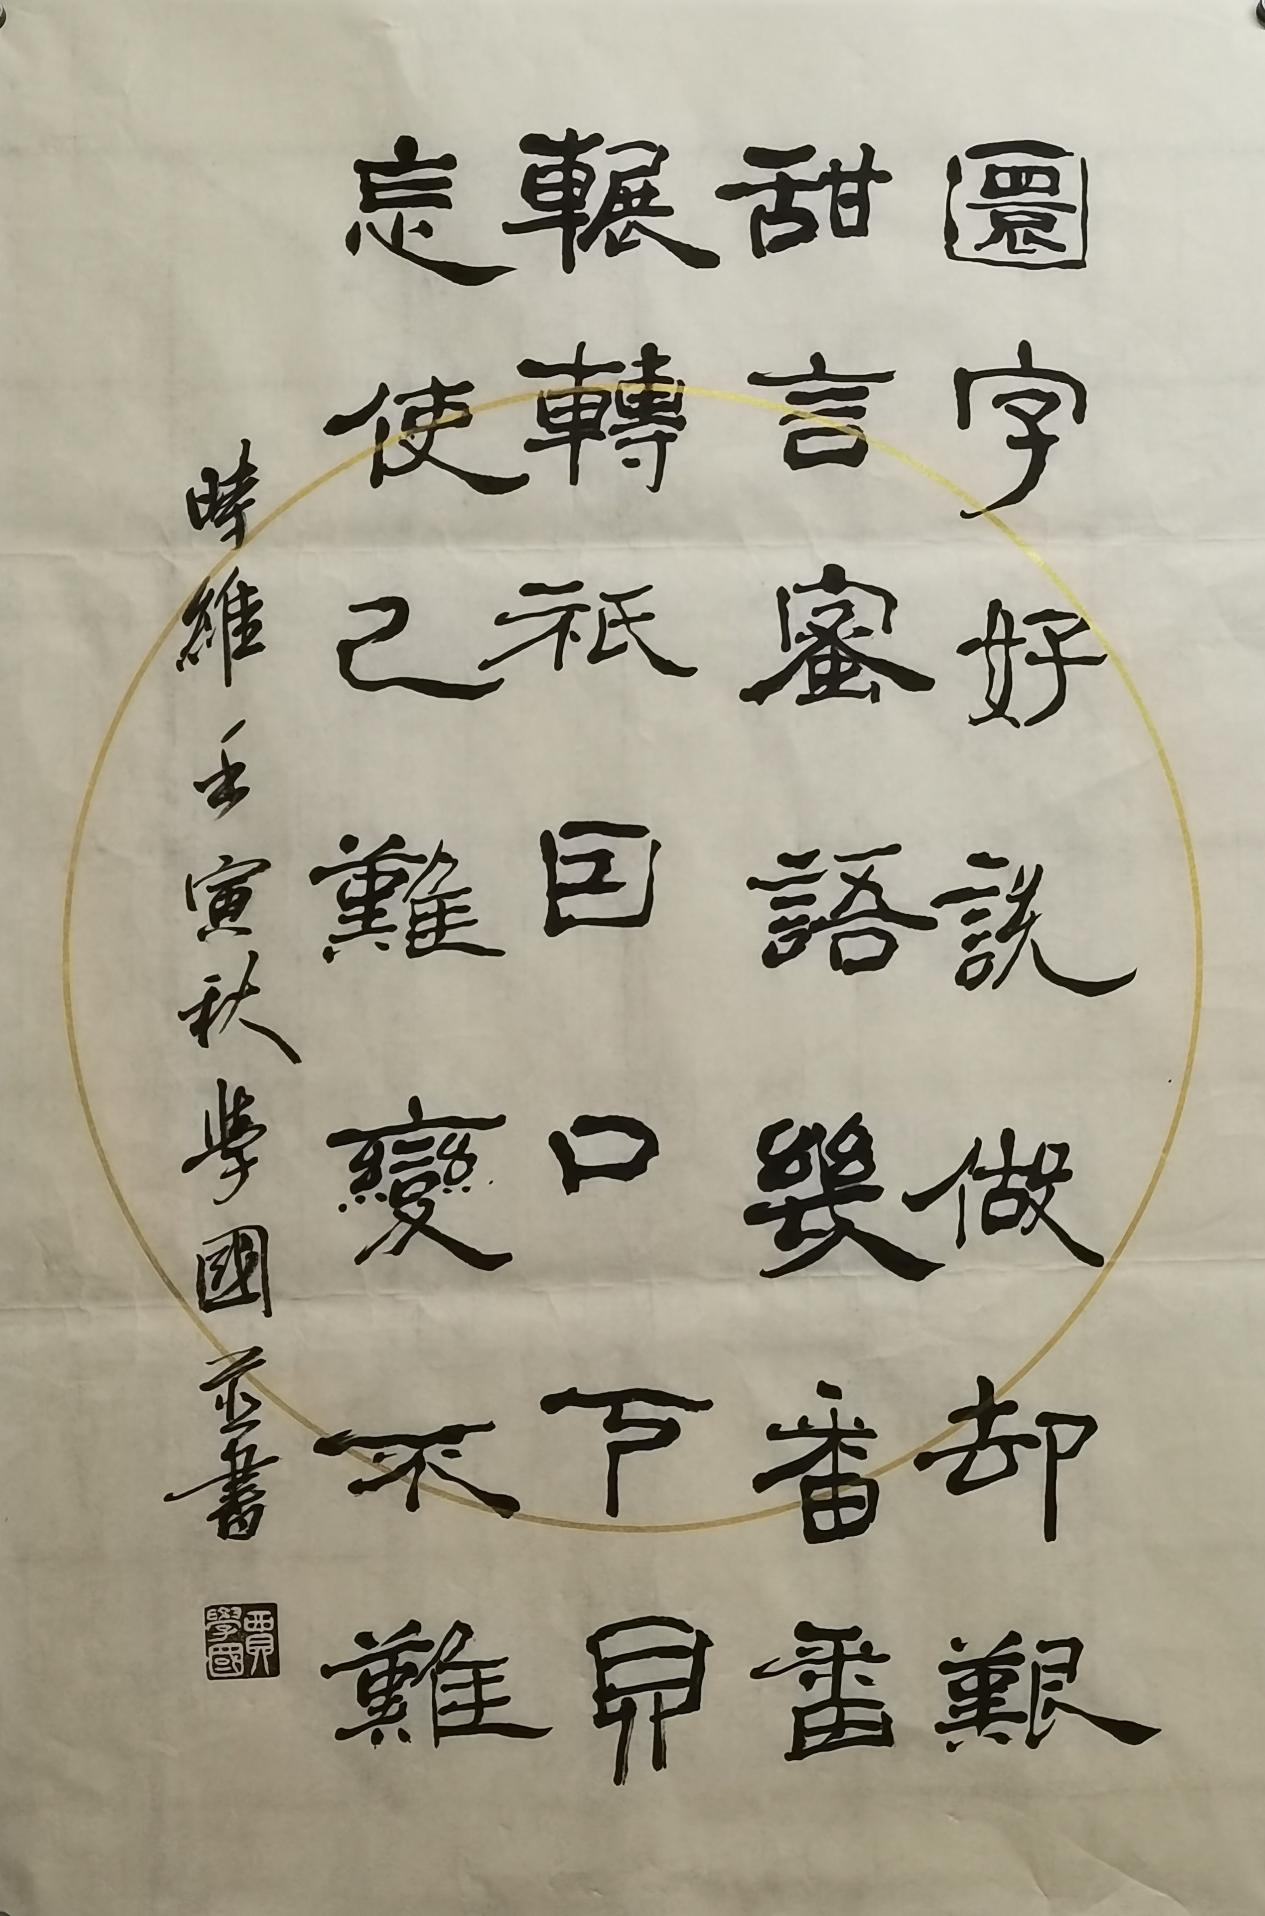 圜字好說做却艱
甜言蜜語幾番番
輾轉祇囙口下
忘使己難變不難
時維壬寅秋學國並書
賈學國